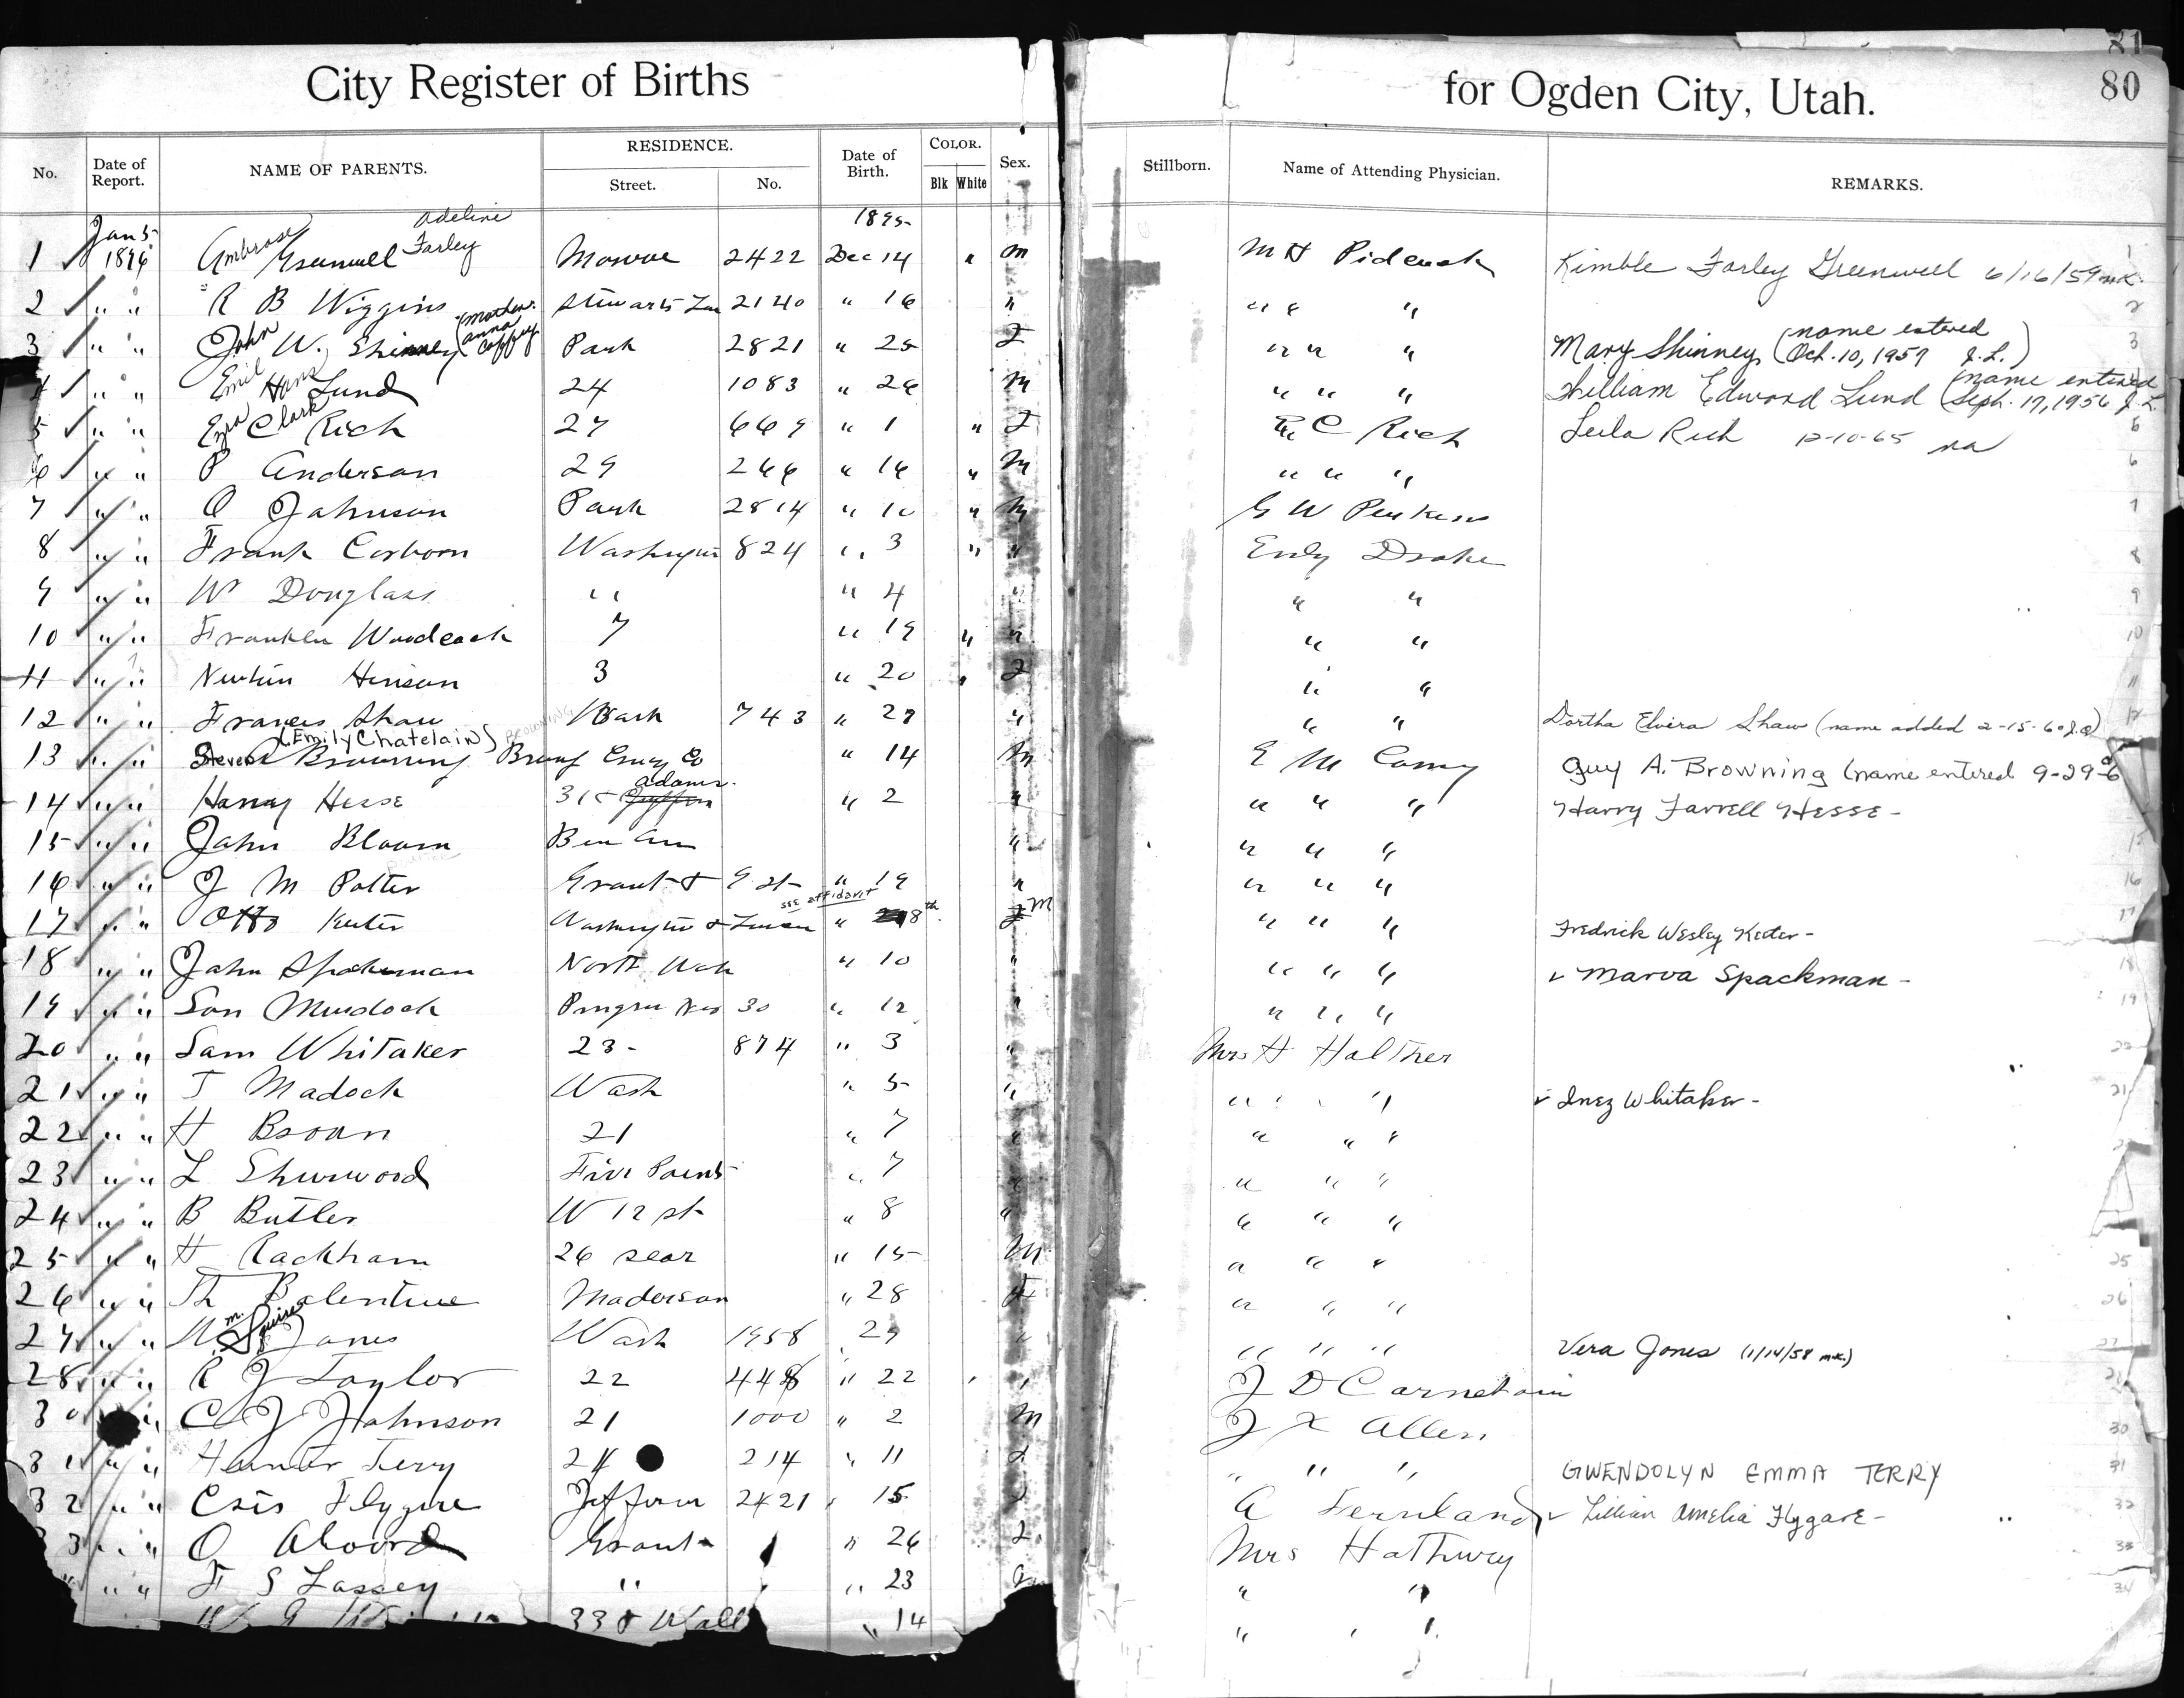 81
80
City Register of Births for Ogden City, Utah.
No. Date of Report. NAME OF PARENTS. RESIDENCE. Street. No. Date of Birth. COLOR. Blk White Sex. Stillborn. Name of Attending Physician. REMARKS.
Jan 5 Adeline 1895
1 1896 Ambrose Greenwell Farley Monroe 2422 Dec 14 " M M H Pidcock Kimble Farley Greenwell 6/16/59 mk. 1
2 " " R B Wiggins Stewarts Lan 2140 " 16 " " " " 2
3 " " John W. Shinney (Mother: Anna Coffey Park 2821 " 25 F " " " Mary Shinney (name entered Oct. 10, 1957 J.L.) 3
4 " " Emil Hans Lund 24 1083 " 26 M " " " William Edward Lund (name entered Sept. 17, 1956 J.L.
5 " " Ezra Clark Rich 27 669 " 1 " F E C Rich Leila Rich 12-10-65 na
6 " " P Anderson 29 266 " 16 " M " " " 6
7 " " O Johnson Park 2814 " 10 " M G W Perkins 7
8 " " Frank Corborn 824 " 3 " " Drake 8
9 " " W Douglass " " 4 " " " 9
10 " " Franklin Woodcock 7 " 19 " " " " 10
11 " " Newton Hinson 3 " 20 " F " " 11
12 " " Francis Shaw Wash 743 " 27 " " " Dortha Elvira Shaw (name added 2-15-60 J.O) 12
(Emily Chatelain) BROWNING
13 " " Steven A Browning " 14 M E M Conroy Guy A. Browning (name entered 9-29-6
14 " " Harry Hesse 315 Adams. " 2 " " " " Harry Farrell Hesse -
15 " " John Bloom Ben " " " " 15
16 " " J M Potter Grant & 9 st " 19 " " " " 16
see affidavit
17 " " Otto Keeter Washington & " 8th F M " " " Fredrick Wesley Keeter - 17
18 " " John Spackman North Wash " 10 " " " " Marva Spackman - 18
19 " " Son Murdock 30 " 12 " " " " 19
20 " " Sam Whitaker 23 - 874 " 3 " Mrs H Halther
21 " " T Madock Wash " 5 " " " " Inez Whitaker - 21
22 " " H Broan 21 " 7 " " " "
23 " " L Shurwood Five Points " 7 " " " "
24 " " B Butler W 12 st " 8 " " " "
25 " " H Rackham 26 rear " 15 M " " " 25
26 " " Th Balentine Maderson " 28 F " " " 26
27 " " Wm. Squires Jones Wash 1958 29 " " " " Vera Jones (1/14/58 mk.) 27
28 " " R J Taylor 22 448 " 22 " " J D Carnahan
30 " C J Johnson 21 1000 " 2 M J X Allen 30
31 " " Terry 24 214 " 11 F " " " GWENDOLYN EMMA TERRY 31
32 " " Flygare Jefferson 2421 " 15 F A Fernland Lillian Amelia Flygare - 32
33 " " O Alvord Grant " 26 F Mrs Hathway 33
" " F S Lassey " " 23 " " 34
33 & Wall " 14 " " "